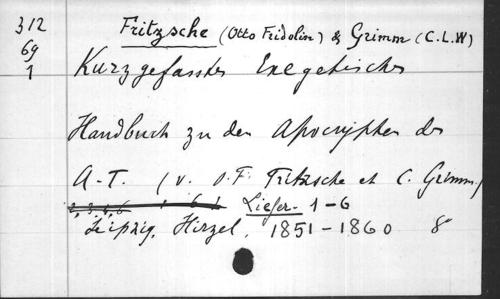 312 Fritzsche (Otto Fridolin) & Grimm (C.L.W)
69
1 Kurzgefasstes Exegetisches
Handbuch zu den Apocryphen des
A.T. (v. O.F. Fritzsche et C. Grimm)
Liefer. 1-6
Leipzig, Hirzel, 1851-1860 8°